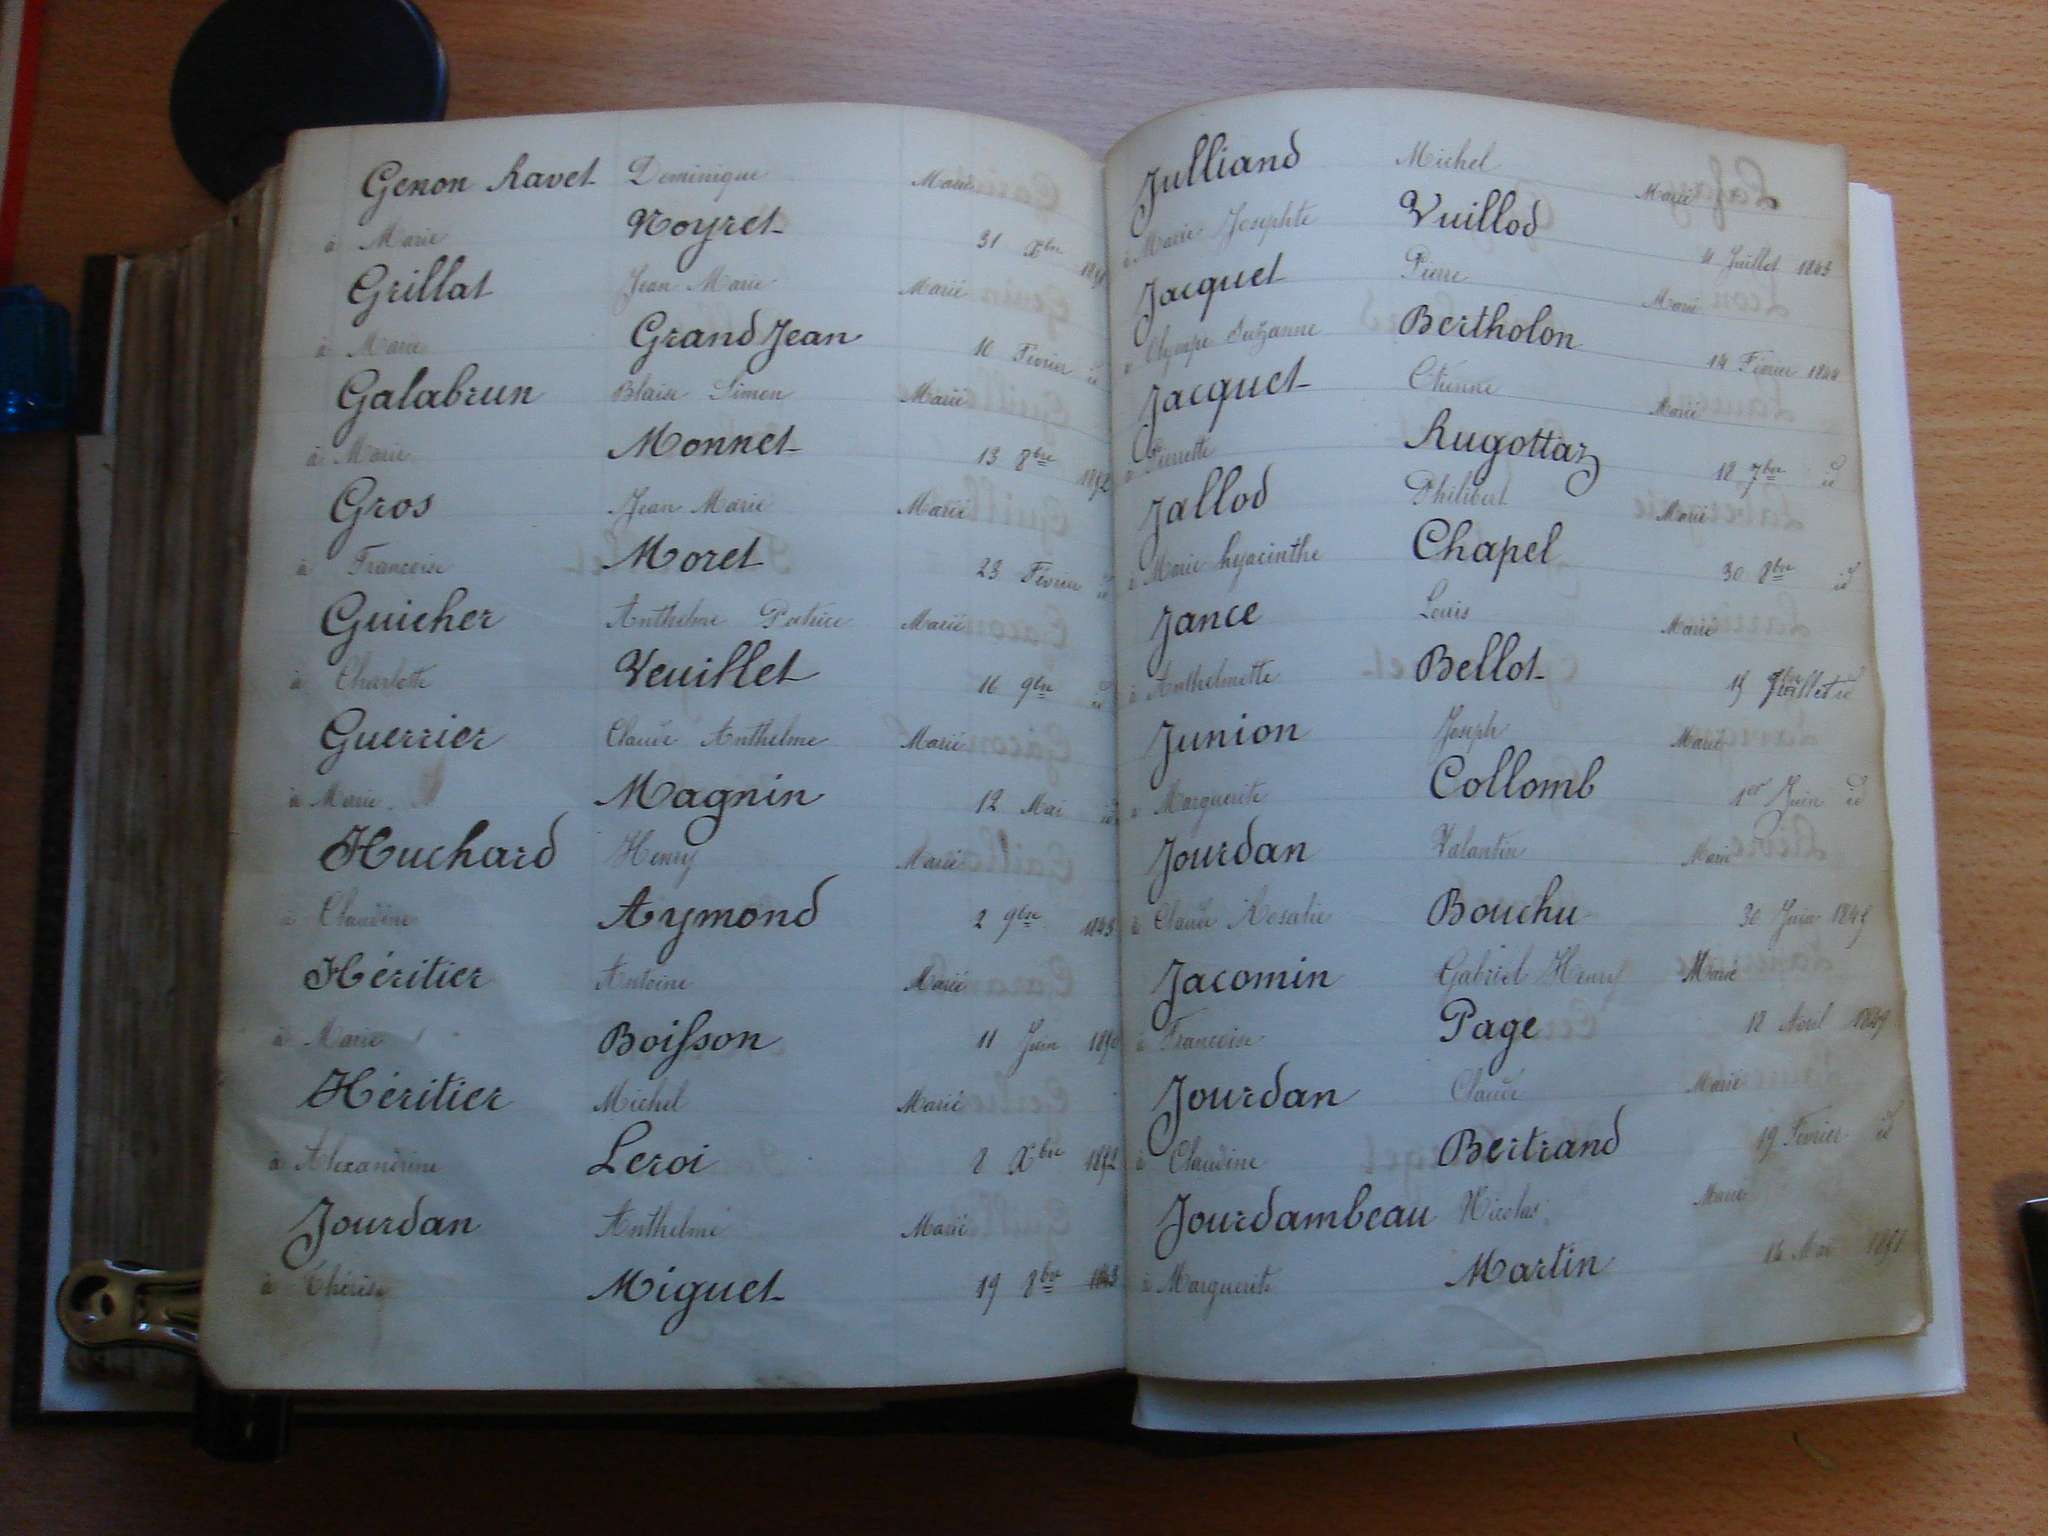 Genon Ravet Dominique Marié
à Marie Noyret 31 Xbre
Grillat Jean Marie Marié
à Marie Grand Jean 10 Février id
Galabrun Blaise Simon Marié
à Marie Monnet 13 8bre 1852
Gros Jean Marie Marié
à Francoise Moret 23 Février id
Guicher Anthelme Patrice Marié
à Charlotte Veuillet 16 9bre id
Guerrier Claude Anthelme Marié
à Marie Magnin 12 Mai id
Huchard Henry Marié
à Claudine Aymond 2 9bre 1843
Héritier Antoine Marié
à Marie Boisson 11 Juin 1850
Héritier Michel Marié
à Alexandrine Leroi 8 Xbre 1852
Jourdan Anthelme Marié
à Thérèse Miguet 19 8bre 1843
Julliand Michel Marié
à Marie Josephte Vuillod 4 Juillet 1843
Jacquet Pierre Marié
à Olympe Suzanne Bertholon 14 Février 1844
Jacquet Etienne Marié
à Pierrette Rugottaz 18 7bre id
Jallod Philibert Marié
à Marie hyacinthe Chapel 30 8bre id
Jance Louis Marié
à Anthelmette Bellot 15 id
Junion Joseph Marié
à Marguerite Collomb 1er Juin id
Jourdan Valantin Marié
à Claude Rosalie Bouchu 30 Juin
Jacomin Gabriel Henry Marié
à Francoise Page 12 Avril 1849
Jourdan Claude Marié
à Claudine Bertrand 19 Février id
Jourdambeau Nicolas Marié
à Marguerite Martin Mai 1851